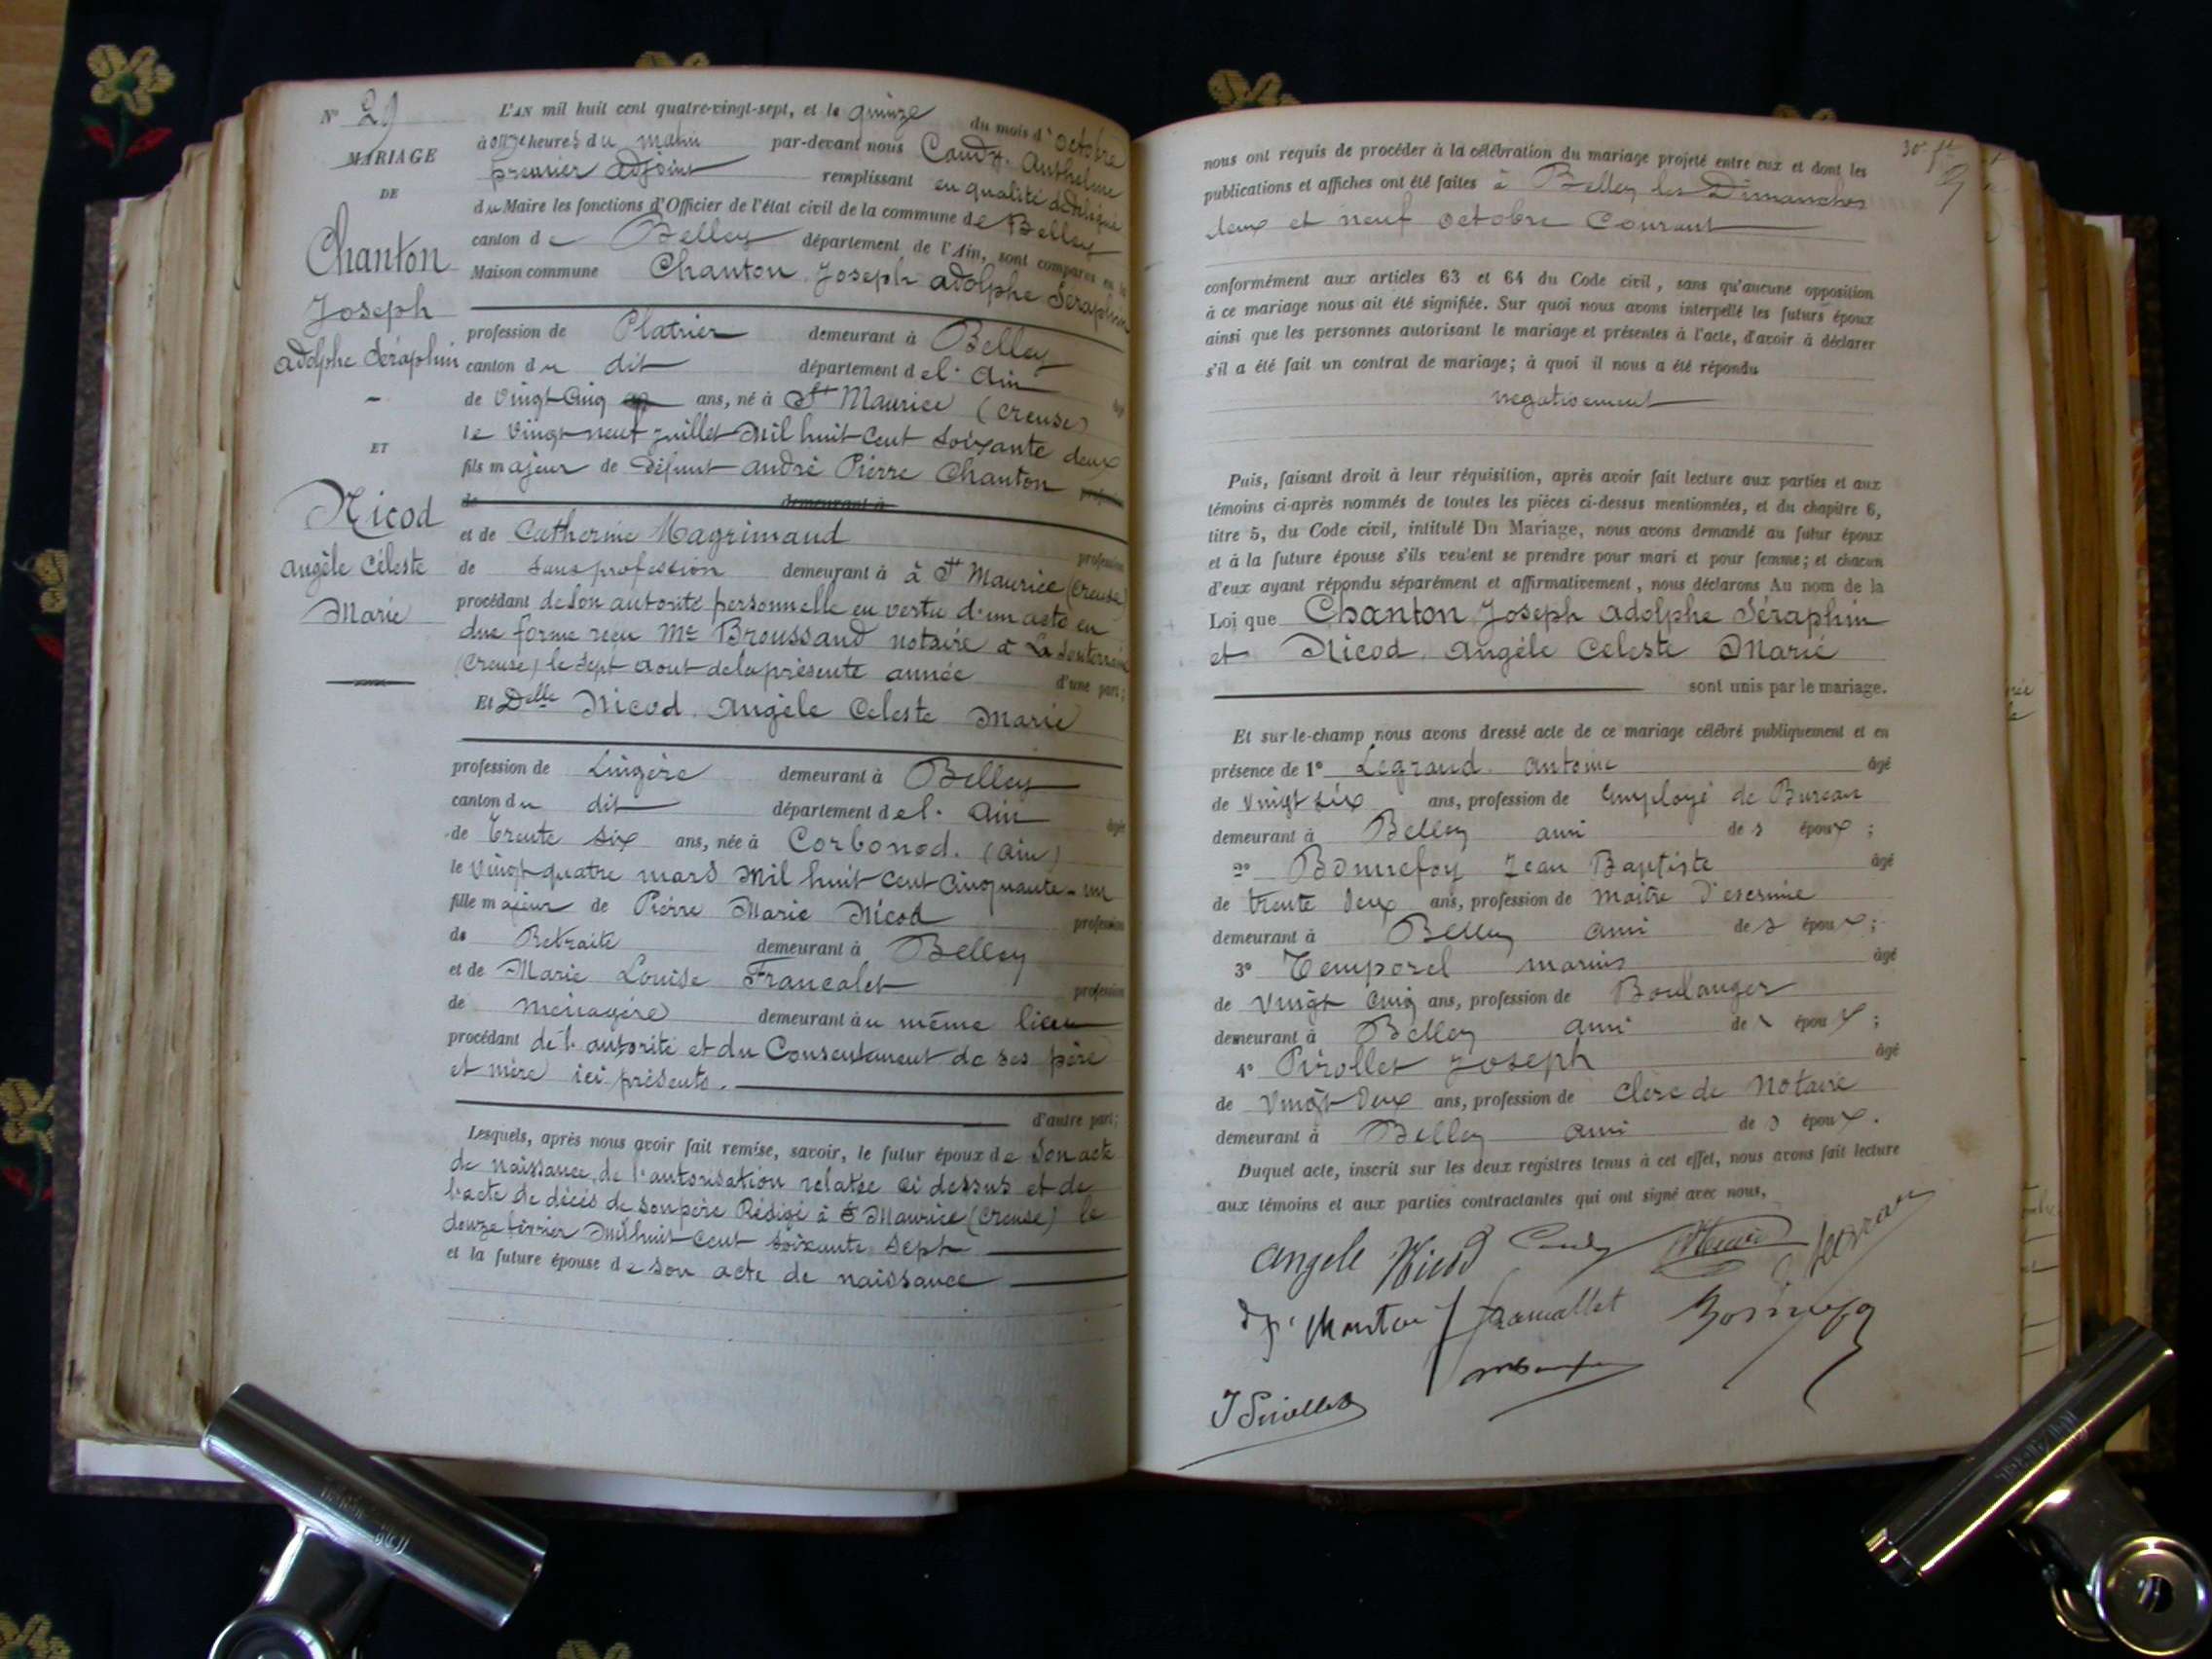 N° 29
MARIAGE
DE
Chanton
Joseph
Adolphe Séraphin
ET
Nicod
Angèle Céleste
Marie
L'AN mil huit cent quatre-vingt-sept, et le quinze du mois d'octobre
à onze heures du matin par-devant nous Caudy. Anthelme
premier adjoint remplissant en qualité de délégué
du Maire les fonctions d'Officier de l'état civil de la commune de Belley
canton de Belley département de l'Ain, sont comparus en la
Maison commune Chanton Joseph Adolphe Séraphin
profession de Platrier demeurant à Belley
canton du dit département de l'Ain âgé
de Vingt Cinq ans, né à St Maurice (Creuse)
le Vingt neuf juillet Mil huit Cent Soixante deux
fils majeur de défunt André Pierre Chanton profession
de demeurant à
et de Catherine Magrimaud profession
de sans profession demeurant à à St Maurice (Creuse)
procédant de son autorité personnelle en vertu d'un acte en
due forme reçu Me Broussaud notaire à La Souterraine
(Creuse) le Sept Aout de la présente année d'une part;
Et Delle Nicod. Angèle Celeste Marie
profession de Lingère demeurant à Belley
canton du dit département de l'Ain âgée
de Trente six ans, née à Corbonod. (Ain)
le Vingt quatre mars Mil huit cent Cinquante-un
fille majeur de Pierre Marie Nicod profession
de Retraité demeurant à Belley
et de Marie Louise Francalet profession
de ménagère demeurant au même lieu
procédant de l'autorité et du Consentement de ses père
et mère ici présents.
d'autre part;
Lesquels, après nous avoir fait remise, savoir, le futur époux de Son acte
de naissance, de l'autorisation relatée ci dessus et de
l'acte de décès de son père Rédigé à St Maurice (Creuse) le
douze février Mil huit Cent Soixante Sept
et la future épouse de son acte de naissance
30e ft
nous ont requis de procéder à la célébration du mariage projeté entre eux et dont les
publications et affiches ont été faites à Belley les Dimanches
deux et neuf octobre Courant
conformément aux articles 63 et 64 du Code civil, sans qu'aucune opposition
à ce mariage nous ait été signifiée. Sur quoi nous avons interpellé les futurs époux
ainsi que les personnes autorisant le mariage et présentes à l'acte, d'avoir à déclarer
s'il a été fait un contrat de mariage; à quoi il nous a été répondu
negativement
Puis, faisant droit à leur réquisition, après avoir fait lecture aux parties et aux
témoins ci-après nommés de toutes les pièces ci-dessus mentionnées, et du chapitre 6,
titre 5, du Code civil, intitulé Du Mariage, nous avons demandé au futur époux
et à la future épouse s'ils veulent se prendre pour mari et pour femme; et chacun
d'eux ayant répondu séparément et affirmativement, nous déclarons Au nom de la
Loi que Chanton Joseph Adolphe Séraphin
et Nicod. Angèle Celeste Marie
sont unis par le mariage.
Et sur-le-champ nous avons dressé acte de ce mariage célébré publiquement et en
présence de 1° Legrand. Antoine âgé
de Vingt six ans, profession de Employé de Bureau
demeurant à Belley ami des époux;
2° Bonnefoy Jean Baptiste âgé
de trente deux ans, profession de Maître d'escrime
demeurant à Belley ami des époux;
3° Temporel Marius âgé
de Vingt Cinq ans, profession de Boulanger
demeurant à Belley ami des époux;
4° Pirollet Joseph âgé
de Vingt Deux ans, profession de Clerc de Notaire
demeurant à Belley ami des époux.
Duquel acte, inscrit sur les deux registres tenus à cet effet, nous avons fait lecture
aux témoins et aux parties contractantes qui ont signé avec nous,
Angele Nicod Caudy Nicod Legrand
Chanton Francallet Bonnefoy
J Pirollet